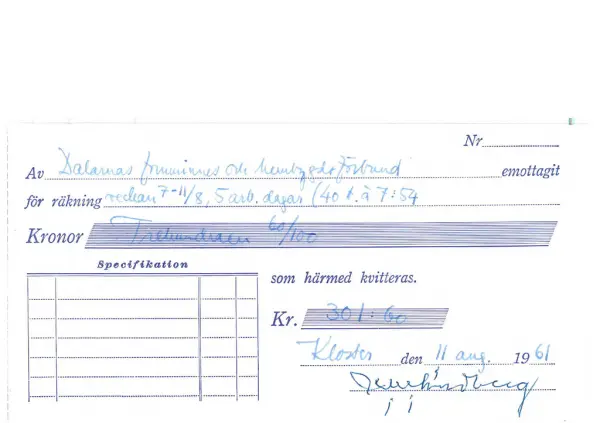 Nr
Av Dalarnas fornminnes och hembygdsförbund emottagit
för räkning veckan 7-11/8, 5 arb. dagar (40 t. à 7:54
Kronor Trehundraen 60/100
Specifikation
som härmed kvitteras.
Kr. 301:60
Kloster den 11 aug. 1961